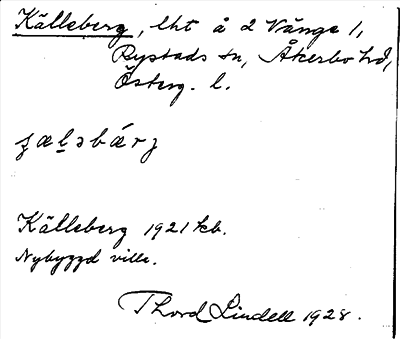 Källeberg, lht å 2 Vänge 1,
Rystads sn, Åkerbo hd,
Österg. l.
ʒælәbárʒ
Källeberg 1921 kb.
Nybyggd villa.
Thord Lindell 1928.